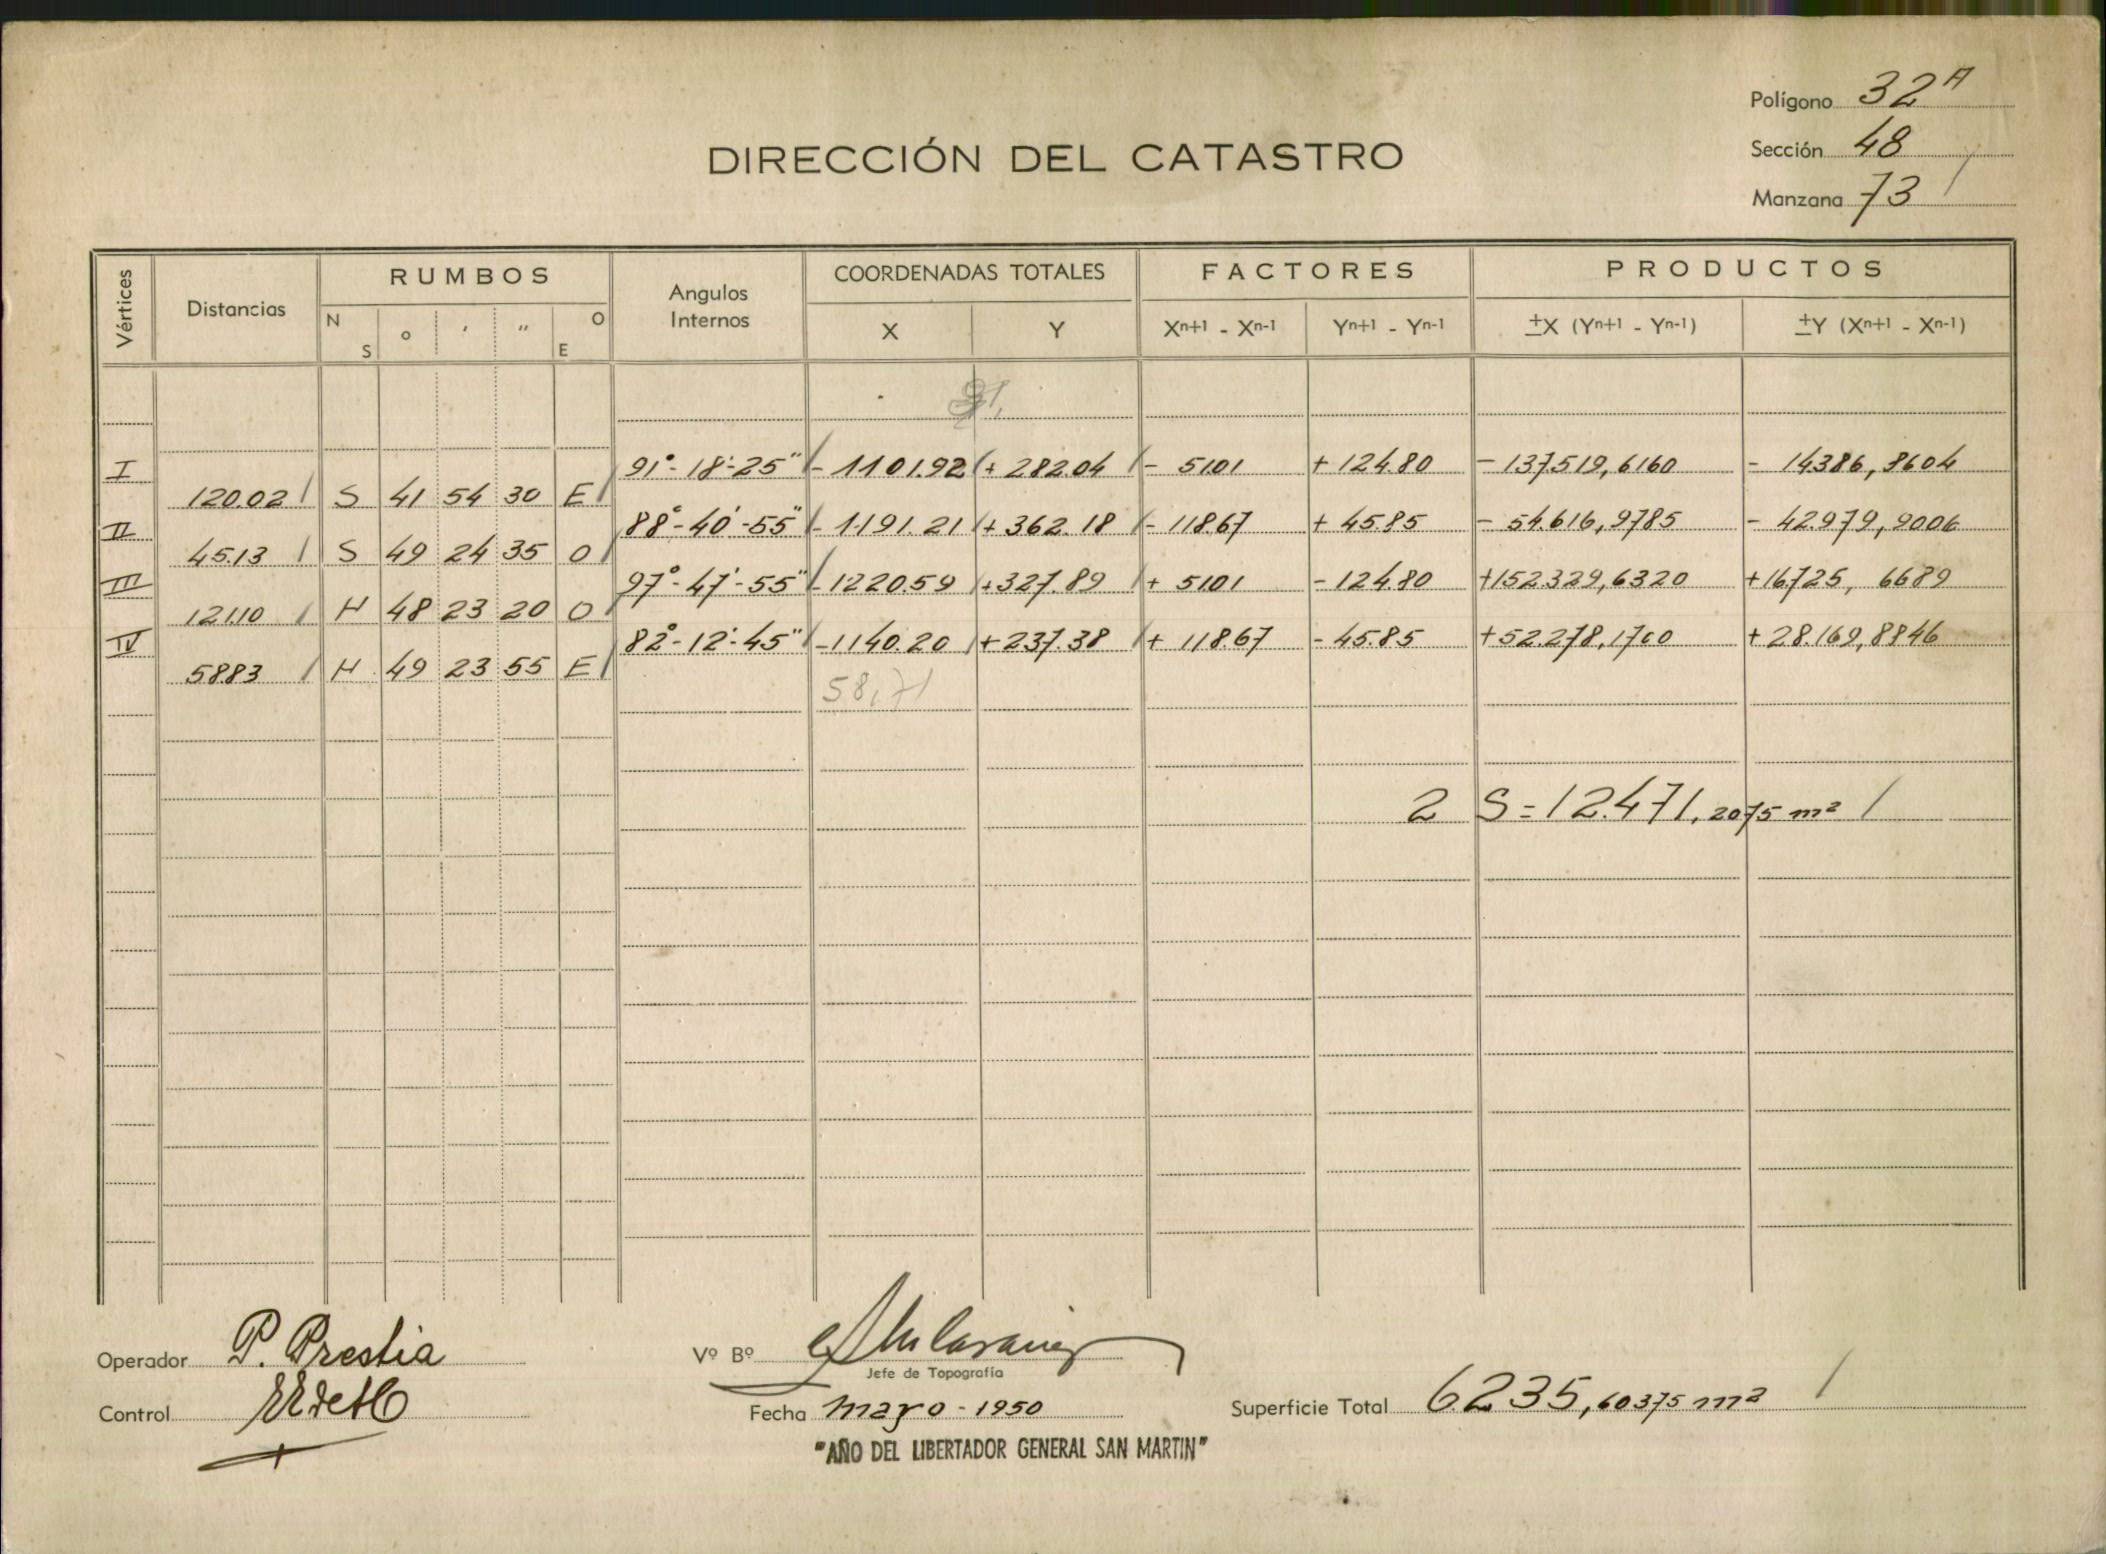 Polígono 32A
Sección 48
Manzana 73
DIRECCIÓN DEL CATASTRO
Vértices Distancias RUMBOS Angulos Internos COORDENADAS TOTALES FACTORES PRODUCTOS
N S ° ′ ″ O E X Y Xn+1 - Xn-1 Yn+1 - Yn-1 ±X (Yn+1 - Yn-1) ±Y (Xn+1 - Xn-1)
I 91°-18'-25" - 1101.92 + 282.04 - 51.01 + 124.80 - 137.519,6160 - 14386,8604
120.02 S 41 54 30 E
II 88°-40'-55" - 1191.21 + 362.18 - 118.67 + 45.85 - 54.616,9785 - 42.979,9006
45.13 S 49 24 35 O
III 97°-47'-55" - 1220.59 + 327.89 + 51.01 - 124.80 + 152.329,6320 + 16.725, 6689
121.10 N 48 23 20 O
IV 82°-12'-45" - 1140.20 + 237.38 + 118.67 - 45.85 + 52.278,1700 + 28.169,8846
58.83 N 49 23 55 E
58,71
2 S = 12.471,2075 m²
Operador P. Prestia
Vº Bº
Jefe de Topografía
Control
Fecha mayo - 1950
Superficie Total 6235,60375 m²
"AÑO DEL LIBERTADOR GENERAL SAN MARTIN"